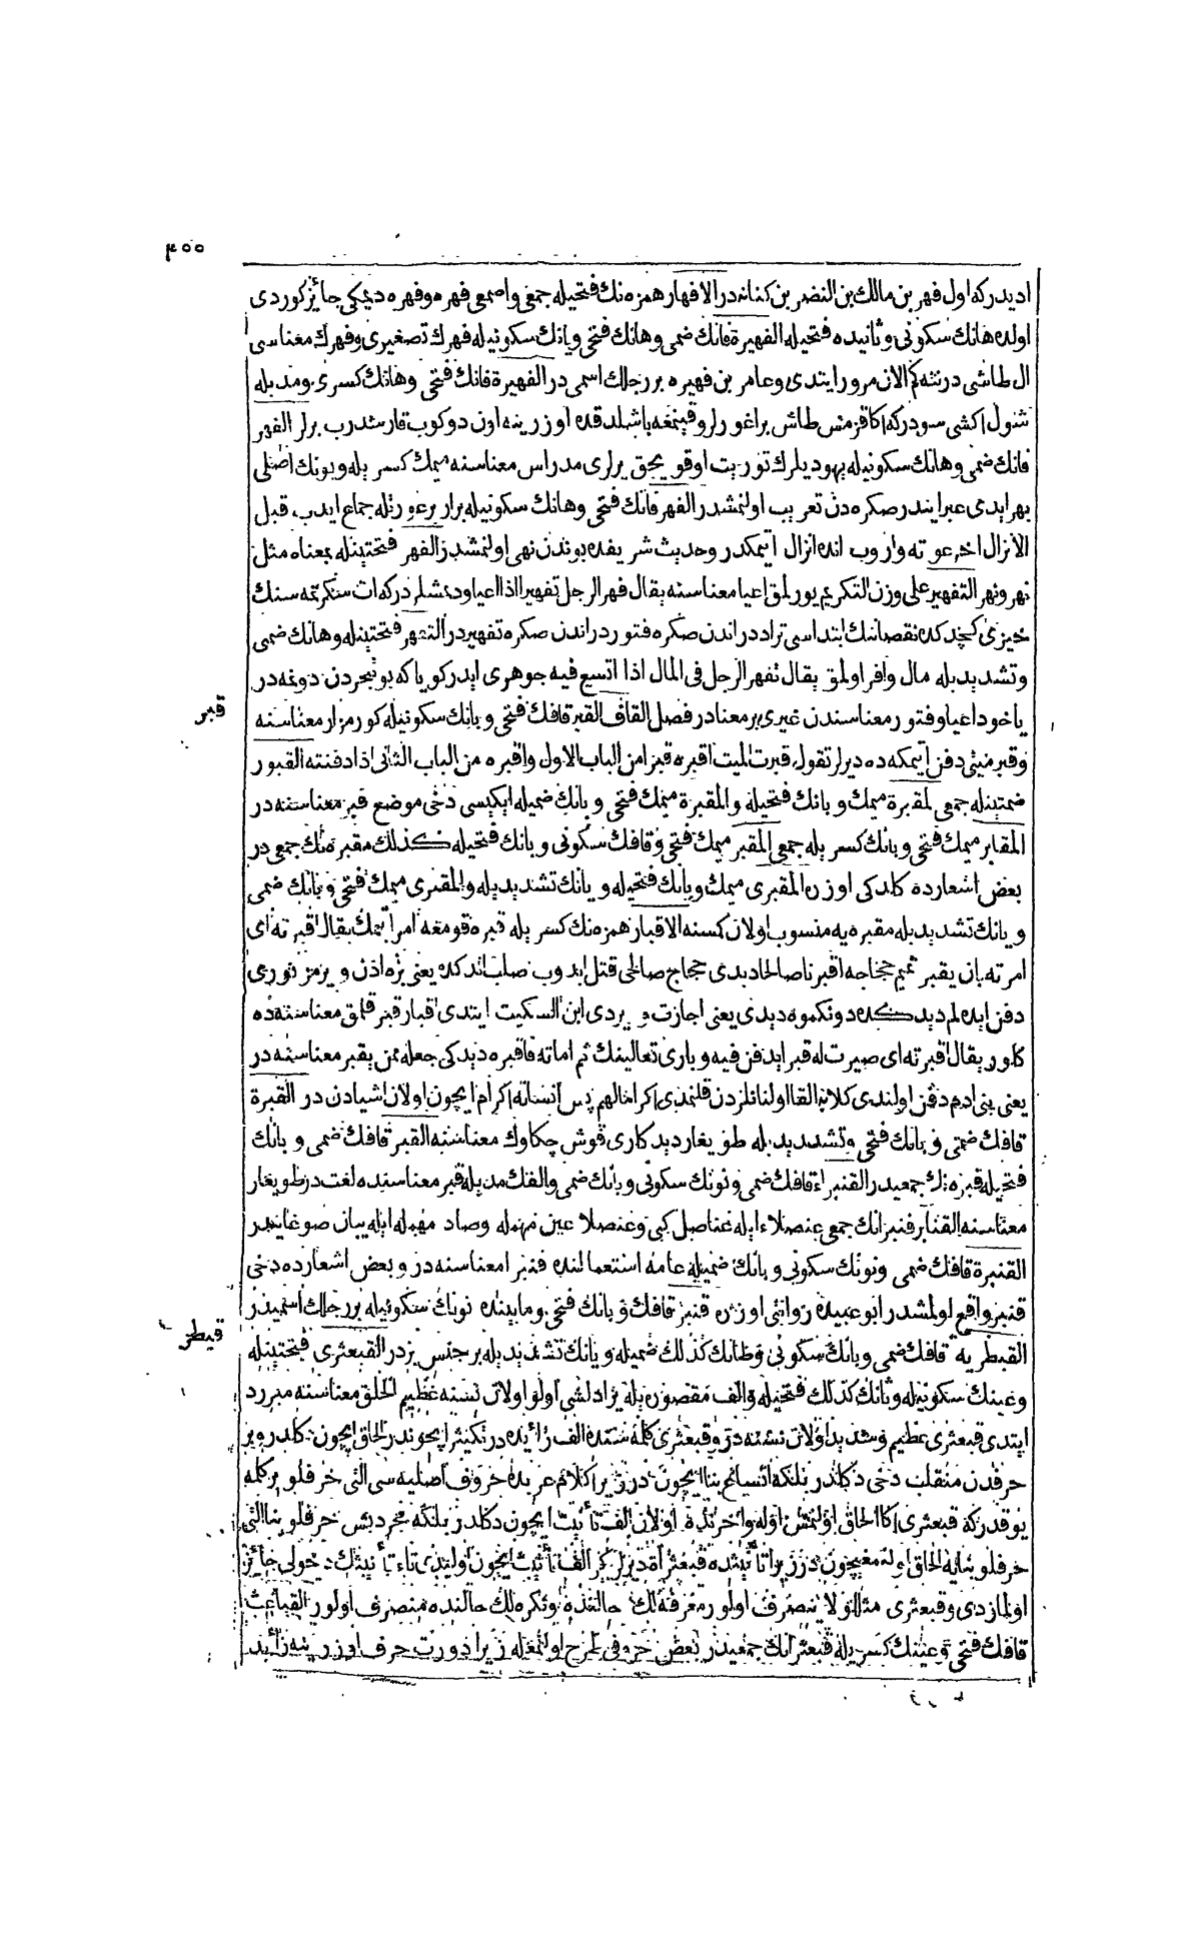 ٣٥٥
اديدركه اول فهر بن مالك بن النضر بن كنانه در الافهار همزه نك فتحيله جمعى و اصمعى فهره و فهره ديمكى جائز كوردى
اولده هانك سكونى و ثانيده فتحيله الفهيرة فانك ضمى وهانك فتحى و يانك سكونيله فهرك تصغيرى و فهرك معناسى
ال طاشى در نته كم الان مرور ايتدى و عامر بن فهيره بر رجلك اسمى در الفهيرة فانك فتحى وهانك كسرى و مد يله
شول اكشى سودركه اكا قزمش طاش براغورلر و قينمغه باشلدقده اوزرينه اون دوكوب قارشدرب برلر الفهر
فانك ضمى وهانك سكونيله يهوديلرك توريت اوقويجق يرلرى مدراس معناسنه ميمك كسريله و بونك اصلى
بهر ايدى عبرايندر صكره دن تعريب اولنمشدر الفهر فانك فتحى وهانك سكونيله برار برعورتله جماع ايدب قبل
الانزال اخر عورته واروب انده انزال اتيمكدر و حديث شريفده بوندن نهى اولنمشدر الفهر فتحتينله بمعناه مثل
نهر و نهر التفهير على وزن التكريم يورلمق اعيا معناسنه يقال فهر الرجل تفهيرا اذا اعيا و ديمشلر دركه ات سكرتمه سنك
خيزى كچدكده نقصاننك ابتداسى تراددر اندن صكره فتور در اندن صكره تفهير در التفهر فتحتينله وهانك ضمى
و تشديديله مال وافر اولمق يقال تفهر الرجل فى المال اذا اتسع فيه جوهرى ايدر كويا كه بو تبحردن دونمه در
ياخود اعيا و فتور معناسندن غيرى بر معنادر فصل القاف القبر قافك فتحى و بانك سكونيله كور مزار معناسنه
قبر
و قبر ميتى دفن اتيمكه ده ديرلر تقول قبرت الميت اقبره قبرا من الباب الاول و اقبره من الباب الثانى اذا دفنته القبور
ضمتينله جمعى المقبرة ميمك و بانك فتحيله والمقبرة ميمك فتحى و بانك ضميله ايكيسى دخى موضع قبر معناسنه در
المقابر ميمك فتحى و بانك كسريله جمعى المقبر ميمك فتحى و قافك سكونى و بانك فتحيله كذلك مقبره نك جمعى در
بعض اشعارده كلدكى اوزره المقبرى ميمك و بانك فتحيله و يانك تشديديله والمقبرى ميمك فتحى و بانك ضمى
و يانك تشديديله مقبره يه منسوب اولان كمسنه الاقبار همزه نك كسريله قبره قومغه امر اتيمك يقال اقبرته اى
امرته بان يقبر تميم حجاجه اقبرنا صالحا ديدى حجاج صالحى قتل ايدوب صلب اتدكده يعنى بزه اذن وير بز نورى
دفن ايده لم ديدكده دونكموه ديدى يعنى اجازت ويردى ابن السكيت ايتدى اقبار قبر قلمق معناسنه ده
كلور يقال اقبرته اى صيرت له قبرا يدفن فيه و بارى تعالينك ثم اماته فاقبره ديدكى جعله ممن يقبر معناسنه در
يعنى بنى ادم دفن اولندى كلابه القا اولنانلردن قلنمدى اكراما لهم پس انسانه اكرام ايچون اولان اشيادن در القبرة
قافك ضمى و بانك فتحى و تشديديله طويغار ديدكلرى قوش چكاوك معناسنه القبر قافك ضمى و بانك
فتحيله قبره نك جمعيدر القنبراء قافك ضمى و نونك سكونى و بانك ضمى والفك مديله قبر معناسنده لغت در طويغار
معناسنه القنابر قنبرانك جمعى عنصلاء ايله عناصل كبى و عنصلا عين مهمله و صاد مهمله ايله يبان صوغانيدر
القنبرة قافك ضمى و نونك سكونى و بانك ضميله عامه استعمالنده قنبرا معناسنه در و بعض اشعارده دخى
قنبر واقع اولمشدر ابو عبيده روايتى اوزره قنبر قافك و بانك فتحى و مابينده نونك سكونيله بر رجلك اسميدر
قبطر
القبطريه قافك ضمى و بانك سكونى و طانك كذلك ضميله و يانك تشديديله بر جنس بزدر القبعثرى فتحتينله
و عينك سكونيله و ثانك كذلك فتحيله و الف مقصوره يله يرادلشى اولو اولان نسنه عظيم الخلق معناسنه مبرد
ايتدى قبعثرى عظيم و شديد اولان نسنه در و قبعثرى كلمه سنده الف زائده در تكثير ايچوندر الحاق ايچون كلدر و بر
حرفدن منقلب دخى دكلدر بلكه اتساع بنا ايچون در زيرا كلام عربده حروف اصليه سى التى حرفلو بر كلمه
يوقدركه قبعثرى اكا الحاق اولنمش اوله و اخرنده اولان الف تأنيث ايچون دكلدر بلكه مجرد بش حرفلو بنا التى
حرفلو بنايه الحاق اولنمغيچون در زيرا تأنيثنده قبعثراة ديرلر اكر الف تأنيث ايچون اوليدى تاء تأنيثك دخولى جائز
اولمازدى و قبعثرى مثللو لا ينصرف اولور معرفه لك حالنده و نكره لك حالنده منصرف اولور القباعث
قافك فتحى و عينك كسريله قبعثرانك جمعيدر بعض حروفى طرح اولنمغله زيرا دورت حرف اوزرينه زائد